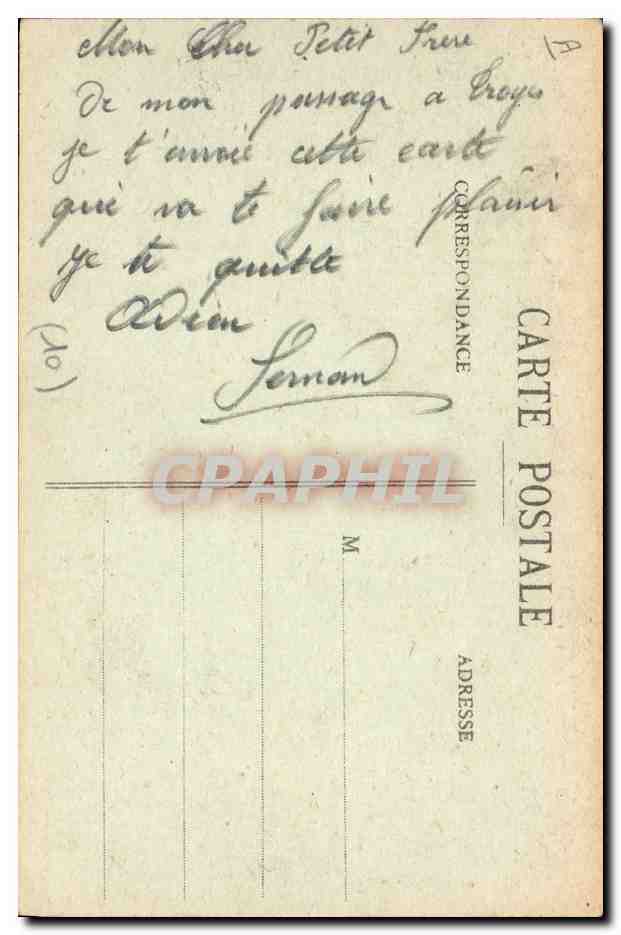 Mon Cher Petit Frere
De mon passage a Troyes
je t'envoie cette carte
qui va te faire plaisir
Je te quitte
Adieu
Fernand
(10)
A
CARTE POSTALE
CORRESPONDANCE
ADRESSE
M
CPAPHIL